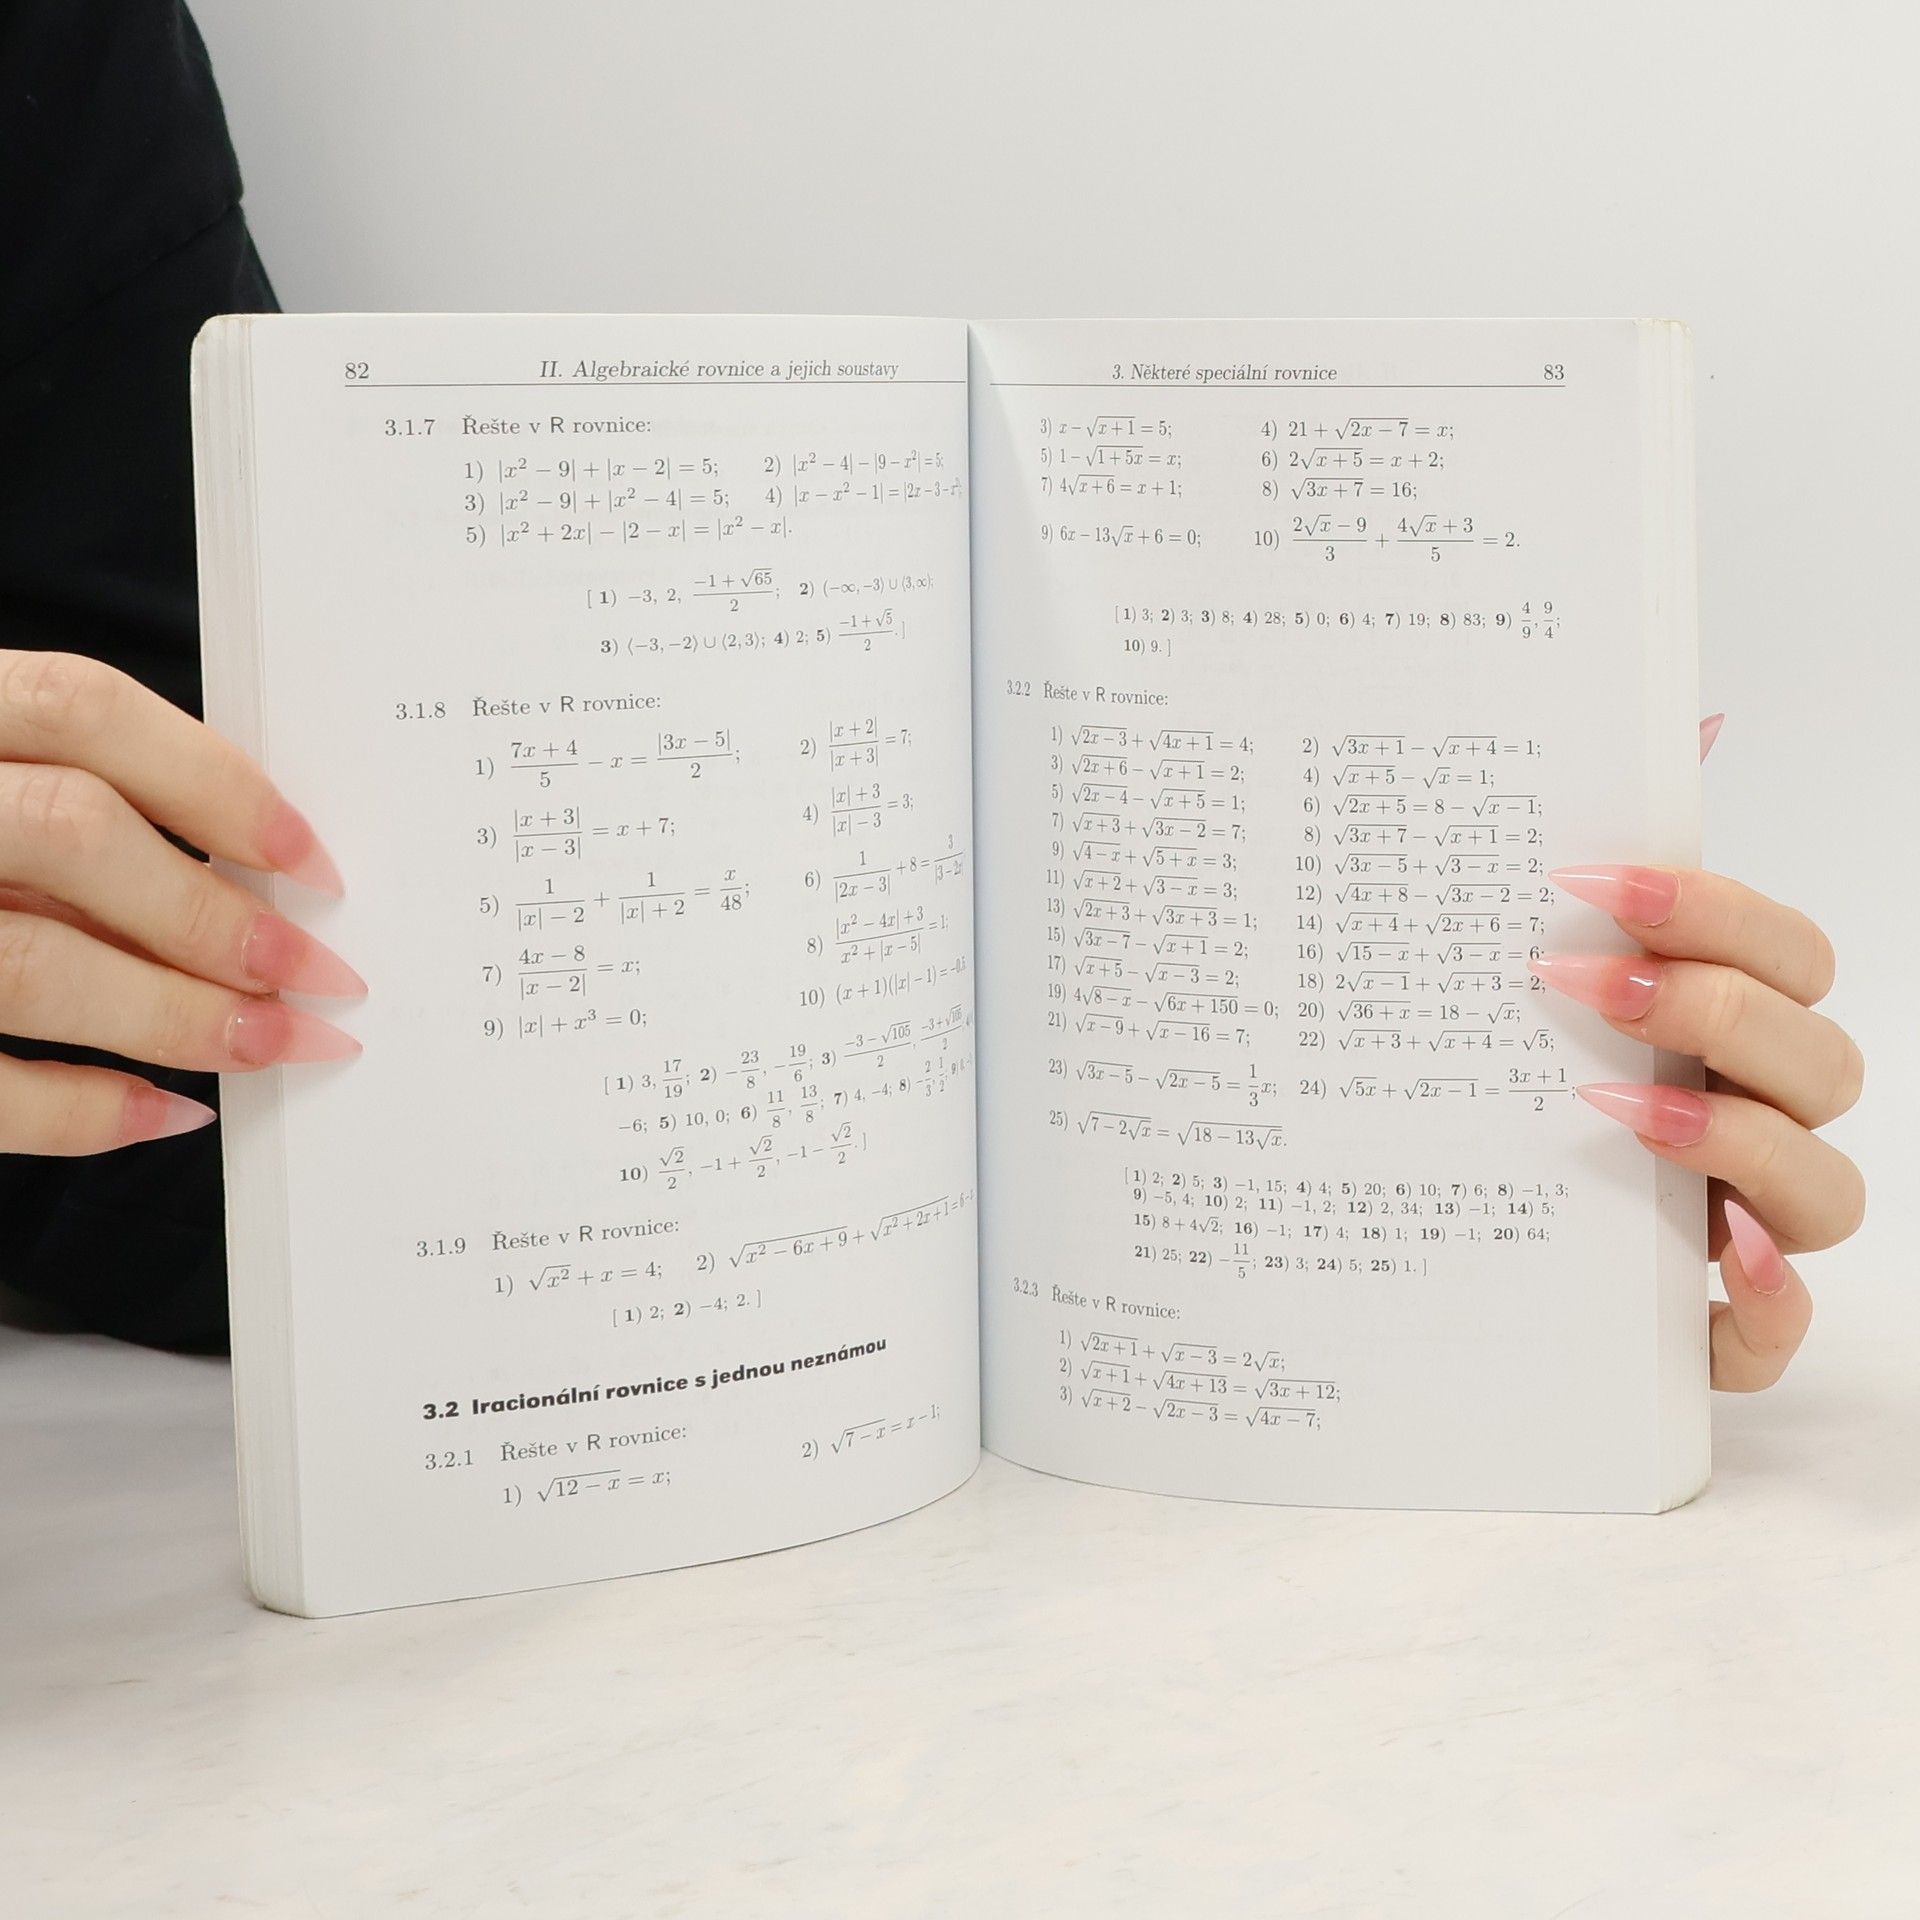 82 II. Algebraické rovnice a jejich soustavy
3.1.7 Řešte v R rovnice:
1) |x² − 9| + |x − 2| = 5; 2) |x² − 4| − |9 − x²| = 5;
3) |x² − 9| + |x² − 4| = 5; 4) |x − x² − 1| = |2x − 3 − x²|;
5) |x² + 2x| − |2 − x| = |x² − x|.
[ 1) −3, 2, (−1 + √65)/2; 2) (−∞, −3⟩ ∪ ⟨3, ∞);
3) ⟨−3, −2⟩ ∪ ⟨2, 3⟩; 4) 2; 5) (−1 + √5)/2. ]
3.1.8 Řešte v R rovnice:
1) (7x + 4)/5 − x = |3x − 5|/2; 2) |x + 2|/|x + 3| = 7;
3) |x + 3|/|x − 3| = x + 7; 4) (|x| + 3)/(|x| − 3) = 3;
5) 1/(|x| − 2) + 1/(|x| + 2) = x/48; 6) 1/|2x − 3| + 8 = 3/|3 − 2x|
7) (4x − 8)/|x − 2| = x; 8) (|x² − 4x| + 3)/(x² + |x − 5|) = 1;
9) |x| + x³ = 0; 10) (x + 1)(|x| − 1) = −0,5
[ 1) 3, 17/19; 2) −23/8, −19/6; 3) (−3 − √105)/2, (−3 + √105)/2,
−6; 5) 10, 0; 6) 11/8, 13/8; 7) 4, −4; 8) −2/3, 1/2; 9) 0, −1
10) √2/2, −1 + √2/2, −1 − √2/2. ]
3.1.9 Řešte v R rovnice:
1) √(x²) + x = 4; 2) √(x² − 6x + 9) + √(x² + 2x + 1) = 6 −
[ 1) 2; 2) −4; 2. ]
3.2 Iracionální rovnice s jednou neznámou
3.2.1 Řešte v R rovnice:
1) √(12 − x) = x; 2) √(7 − x) = x − 1;
3. Některé speciální rovnice 83
3) x − √(x + 1) = 5; 4) 21 + √(2x − 7) = x;
5) 1 − √(1 + 5x) = x; 6) 2√(x + 5) = x + 2;
7) 4√(x + 6) = x + 1; 8) √(3x + 7) = 16;
9) 6x − 13√x + 6 = 0; 10) (2√x − 9)/3 + (4√x + 3)/5 = 2.
[ 1) 3; 2) 3; 3) 8; 4) 28; 5) 0; 6) 4; 7) 19; 8) 83; 9) 4/9, 9/4;
10) 9. ]
3.2.2 Řešte v R rovnice:
1) √(2x − 3) + √(4x + 1) = 4; 2) √(3x + 1) − √(x + 4) = 1;
3) √(2x + 6) − √(x + 1) = 2; 4) √(x + 5) − √x = 1;
5) √(2x − 4) − √(x + 5) = 1; 6) √(2x + 5) = 8 − √(x − 1);
7) √(x + 3) + √(3x − 2) = 7; 8) √(3x + 7) − √(x + 1) = 2;
9) √(4 − x) + √(5 + x) = 3; 10) √(3x − 5) + √(3 − x) = 2;
11) √(x + 2) + √(3 − x) = 3; 12) √(4x + 8) − √(3x − 2) = 2;
13) √(2x + 3) + √(3x + 3) = 1; 14) √(x + 4) + √(2x + 6) = 7;
15) √(3x − 7) − √(x + 1) = 2; 16) √(15 − x) + √(3 − x) = 6;
17) √(x + 5) − √(x − 3) = 2; 18) 2√(x − 1) + √(x + 3) = 2;
19) 4√(8 − x) − √(6x + 150) = 0; 20) √(36 + x) = 18 − √x;
21) √(x − 9) + √(x − 16) = 7; 22) √(x + 3) + √(x + 4) = √5;
23) √(3x − 5) − √(2x − 5) = 1/3 x; 24) √(5x) + √(2x − 1) = (3x + 1)/2;
25) √(7 − 2√x) = √(18 − 13√x).
[ 1) 2; 2) 5; 3) −1, 15; 4) 4; 5) 20; 6) 10; 7) 6; 8) −1, 3;
9) −5, 4; 10) 2; 11) −1, 2; 12) 2, 34; 13) −1; 14) 5;
15) 8 + 4√2; 16) −1; 17) 4; 18) 1; 19) −1; 20) 64;
21) 25; 22) −11/5; 23) 3; 24) 5; 25) 1. ]
3.2.3 Řešte v R rovnice:
1) √(2x + 1) + √(x − 3) = 2√x;
2) √(x + 1) + √(4x + 13) = √(3x + 12);
3) √(x + 2) − √(2x − 3) = √(4x − 7);